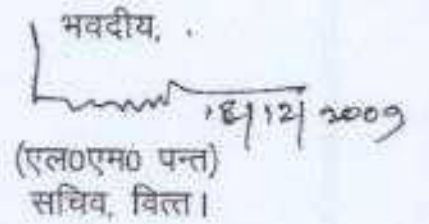 भवदीय,
18/12/2009
(एल0एम0 पन्त)
सचिव, वित्त।